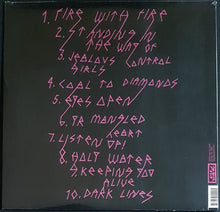 1. FIRE WITH FIRE
2. STANDING IN
THE WAY OF
3. JEALOUS CONTROL
GIRLS
4. COAL TO DIAMONDS
5. EYES OPEN
6. YR MANGLED
HEART
7. LISTEN
UP!
8. HOLY WATER
9 KEEPING YOU
ALIVE
10. DARK LINES